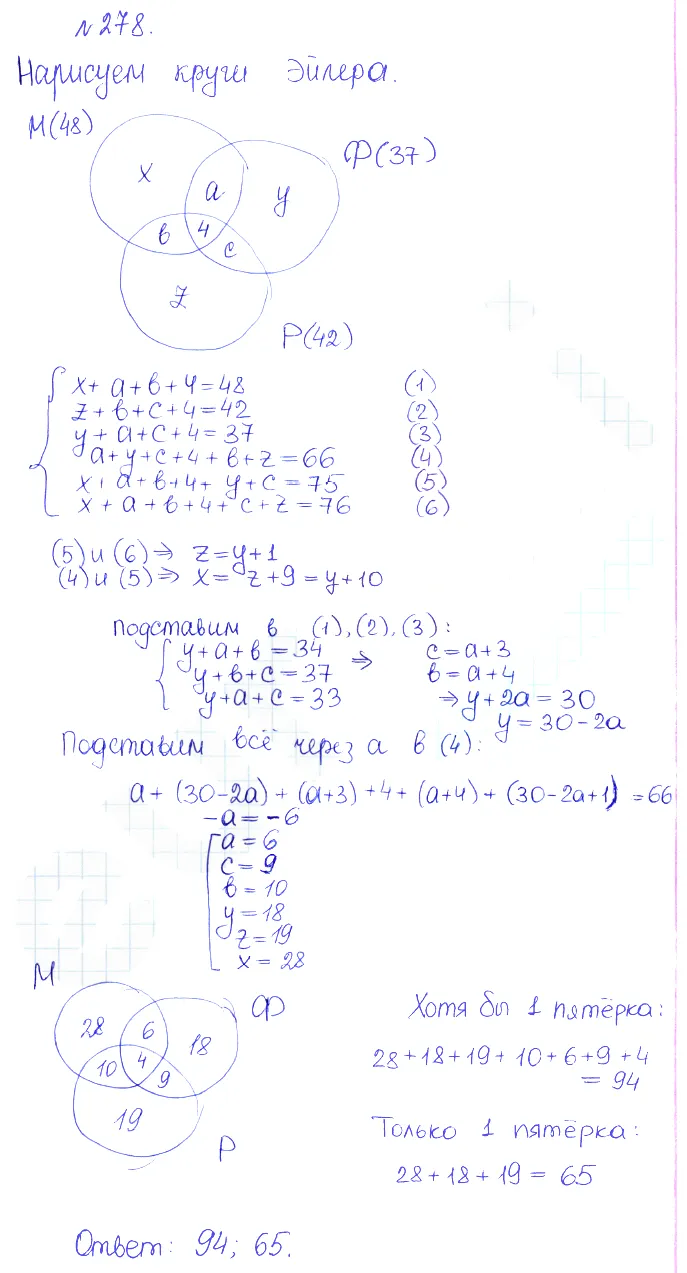 №278.
Нарисуем круги Эйлера.
М(48)
Ф(37)
x
a
y
в
4
c
z
Р(42)
x+a+в+4=48 (1)
z+в+c+4=42 (2)
y+a+c+4=37 (3)
a+y+c+4+в+z=66 (4)
x+a+в+4+y+c=75 (5)
x+a+в+4+c+z=76 (6)
(5) и (6) ⇒ z=y+1
(4) и (5) ⇒ x= z+9=y+10
подставим в (1), (2), (3):
y+a+в=34 ⇒ c=a+3
y+в+c=37 в=a+4
y+a+c=33 ⇒ y+2a=30
y=30-2a
Подставим всё через a в (4):
a+(30-2a)+(a+3)+4+(a+4)+(30-2a+1)=66
-a=-6
a=6
c=9
в=10
y=18
z=19
x=28
М
Ф
28
6
18
10
4
9
19
Р
Хотя бы 1 пятёрка:
28+18+19+10+6+9+4
=94
Только 1 пятёрка:
28+18+19=65
Ответ: 94; 65.